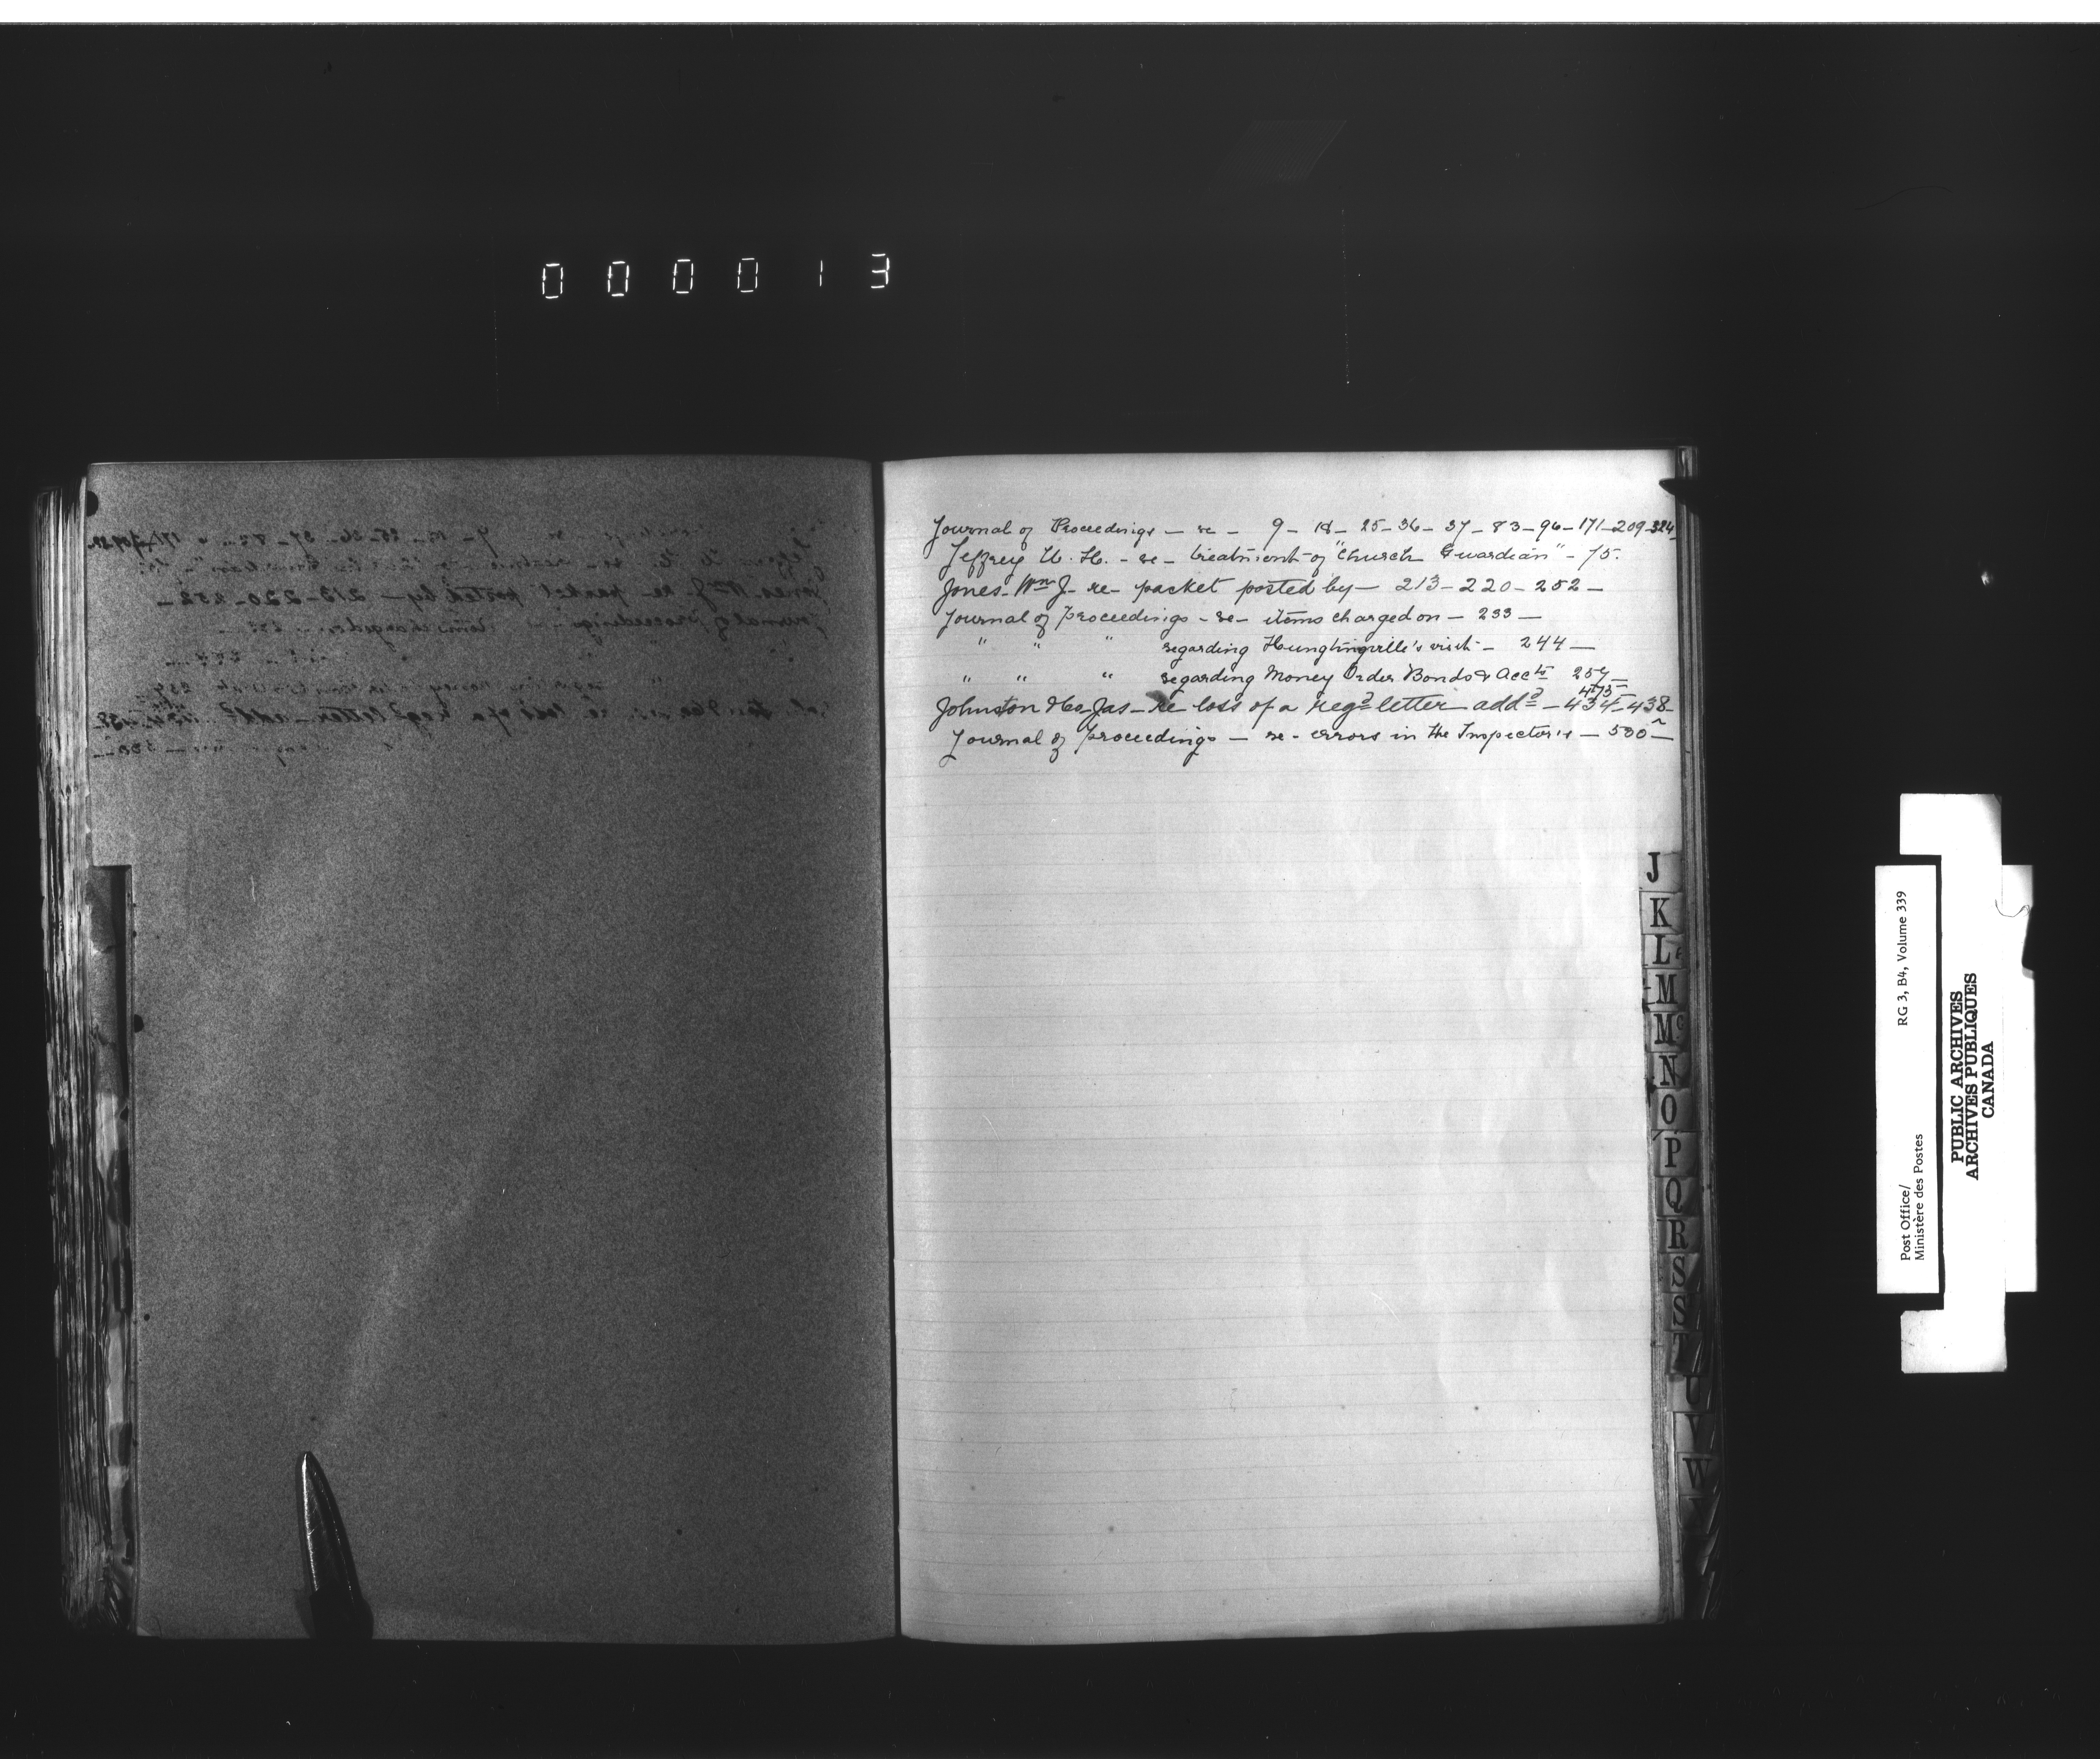 000013
Journal of Proceedings — re — 9 — 18 — 25 — 36 — 37 — 83 — 96 — 171 — 209 — 324
Jeffrey H. — re — treatment of "Church Guardian" — 75.
Jones — Wm J — re — packet posted by — 213 — 220 — 252 —
Journal of Proceedings — re — items charged on — 233 —
" " " regarding visit — 244 —
" " " regarding Money Order Bonds & Accts 257 —
475
Johnston & Co Jas — re loss of a regd letter addd — 434 — 438
Journal of Proceedings — re — errors in the Inspector's — 500 —
J
K
L
M
Mc
N
O
P
Q
R
S
S
T
U
V
W
Y
Post Office/ RG 3, B4, Volume 339
Ministère des Postes
PUBLIC ARCHIVES
ARCHIVES PUBLIQUES
CANADA